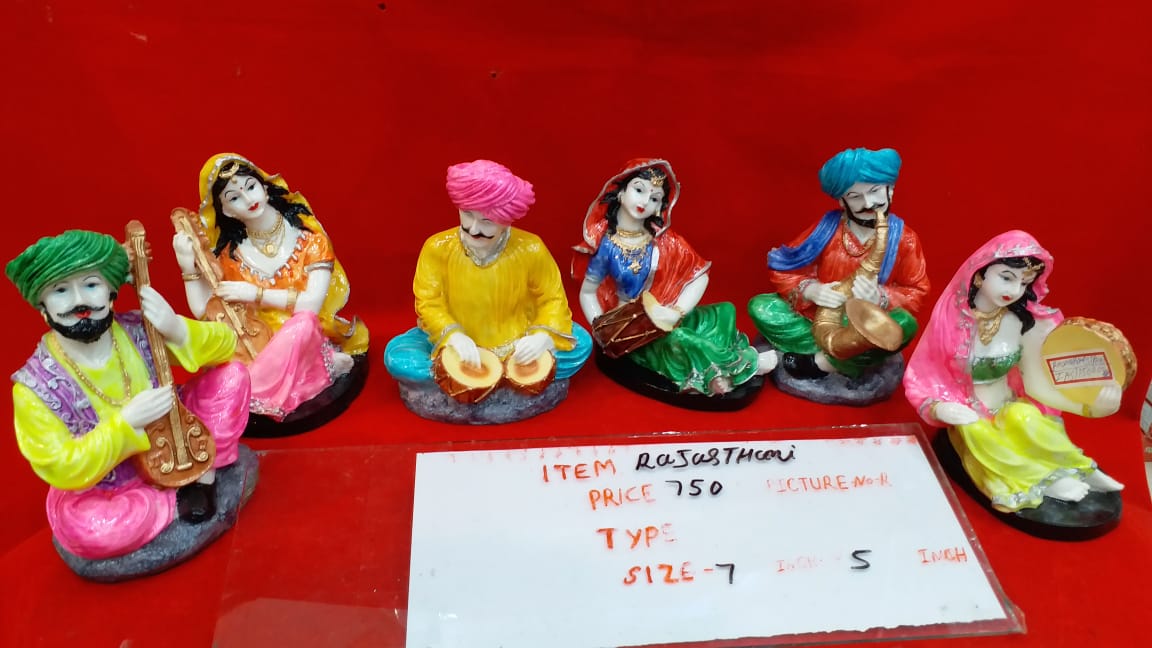 ITEM RaJasTHani
PRICE 750 PICTURE-No-R
TYPE
SIZE-7 INCH - 5 INGH